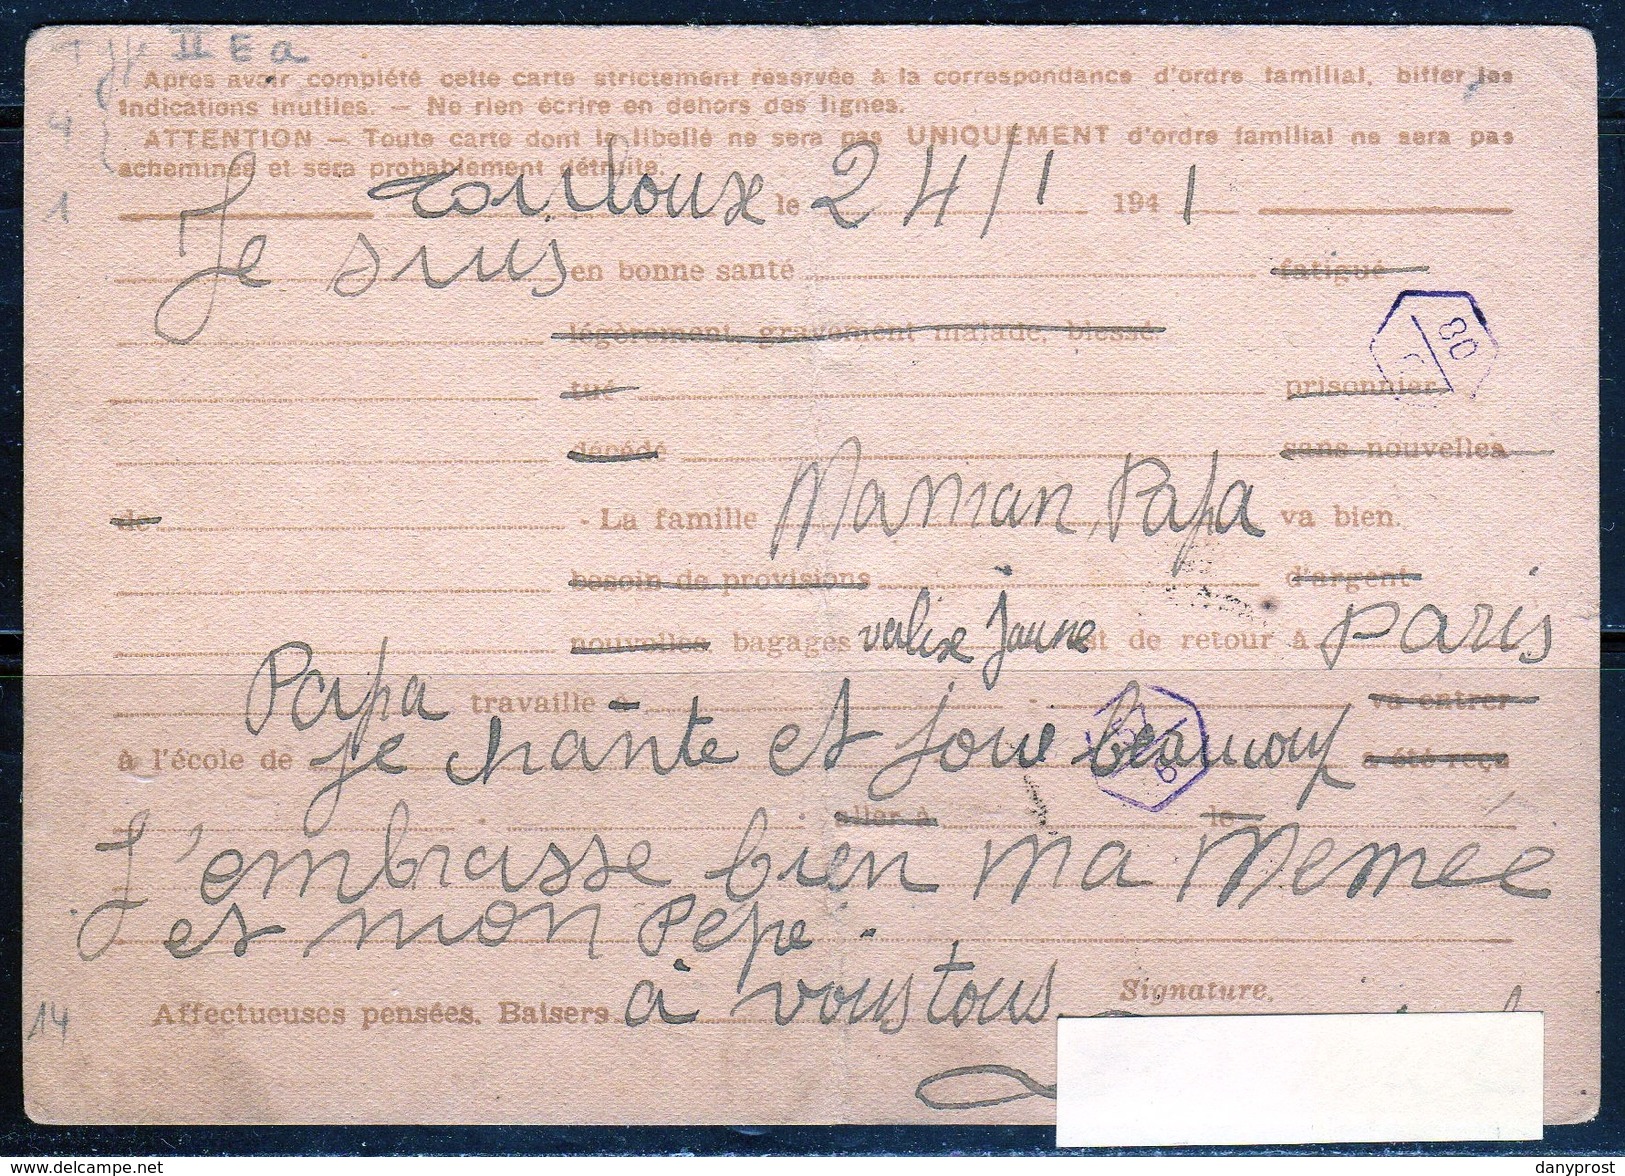 Type II E a
Après avoir complété cette carte strictement réservée à la correspondance d'ordre familial, biffer les
indications inutiles. — Ne rien écrire en dehors des lignes.
ATTENTION — Toute carte dont le libellé ne sera pas UNIQUEMENT d'ordre familial ne sera pas
acheminée et sera probablement détruite.
1 le 24/1 1941
Je suis en bonne santé fatigué
légèrement, gravement malade, blessé.
tué prisonnier
décédé sans nouvelles
de - La famille Maman, Papa va bien.
besoin de provisions d'argent
nouvelles bagages valise jaune est de retour à Paris
Papa travaille à va entrer
à l'école de je chante et joue beaucoup a été reçu
aller à le
J'embrasse bien ma Memée
et mon Pépé.
14 Affectueuses pensées. Baisers à vous tous Signature.
danyprost